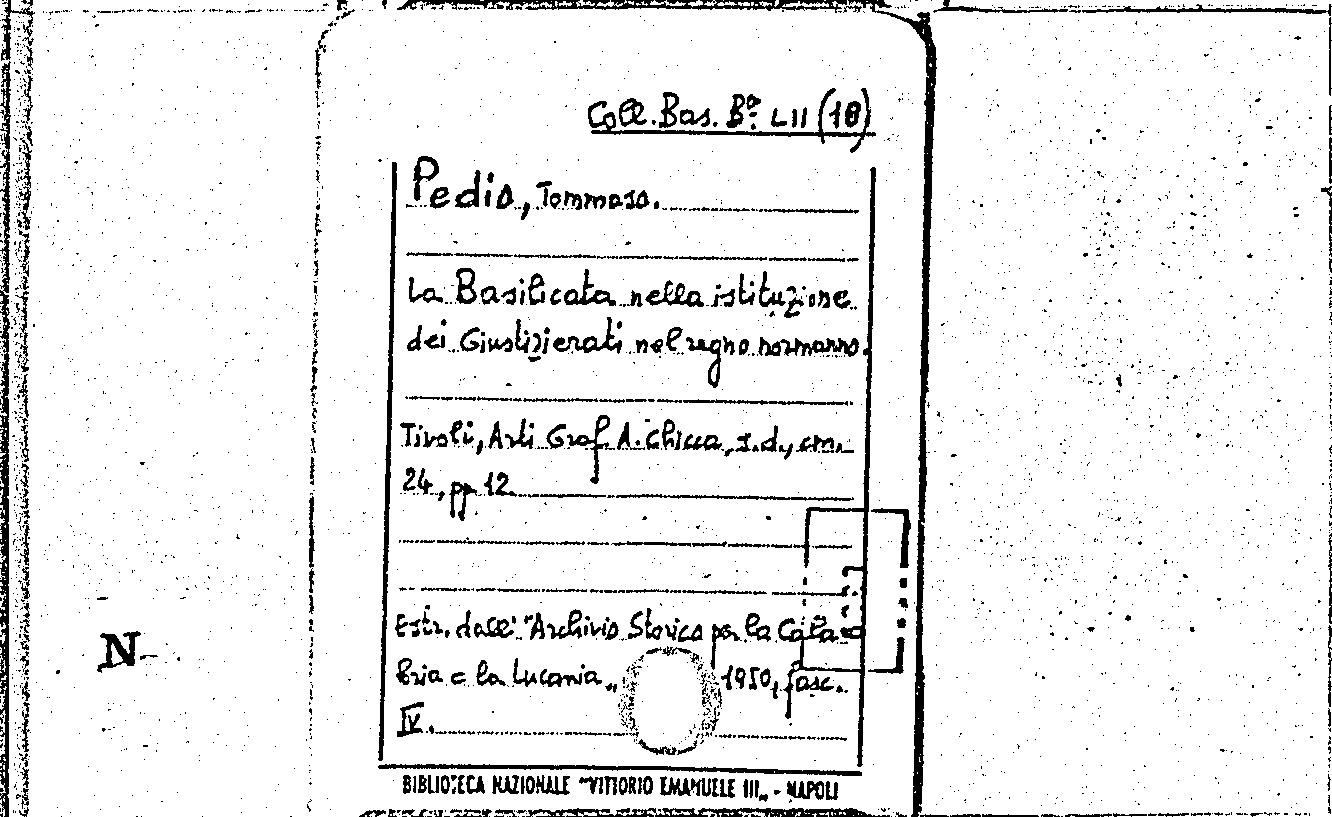 Coll. Bas. Bª. LII (18)
Pedio, Tommaso.
La Basilicata nella istituzione
dei Giustizierati nel regno normanno.
Tivoli, Arti Graf. A. Chicca, s.d., cm.
24, pp. 12.
Estr. dall' "Archivio Storico per la Cala=
bria e la Lucania„ 1950, fasc.
IV.
N
BIBLIOTECA NAZIONALE "VITTORIO EMANUELE III„ - NAPOLI